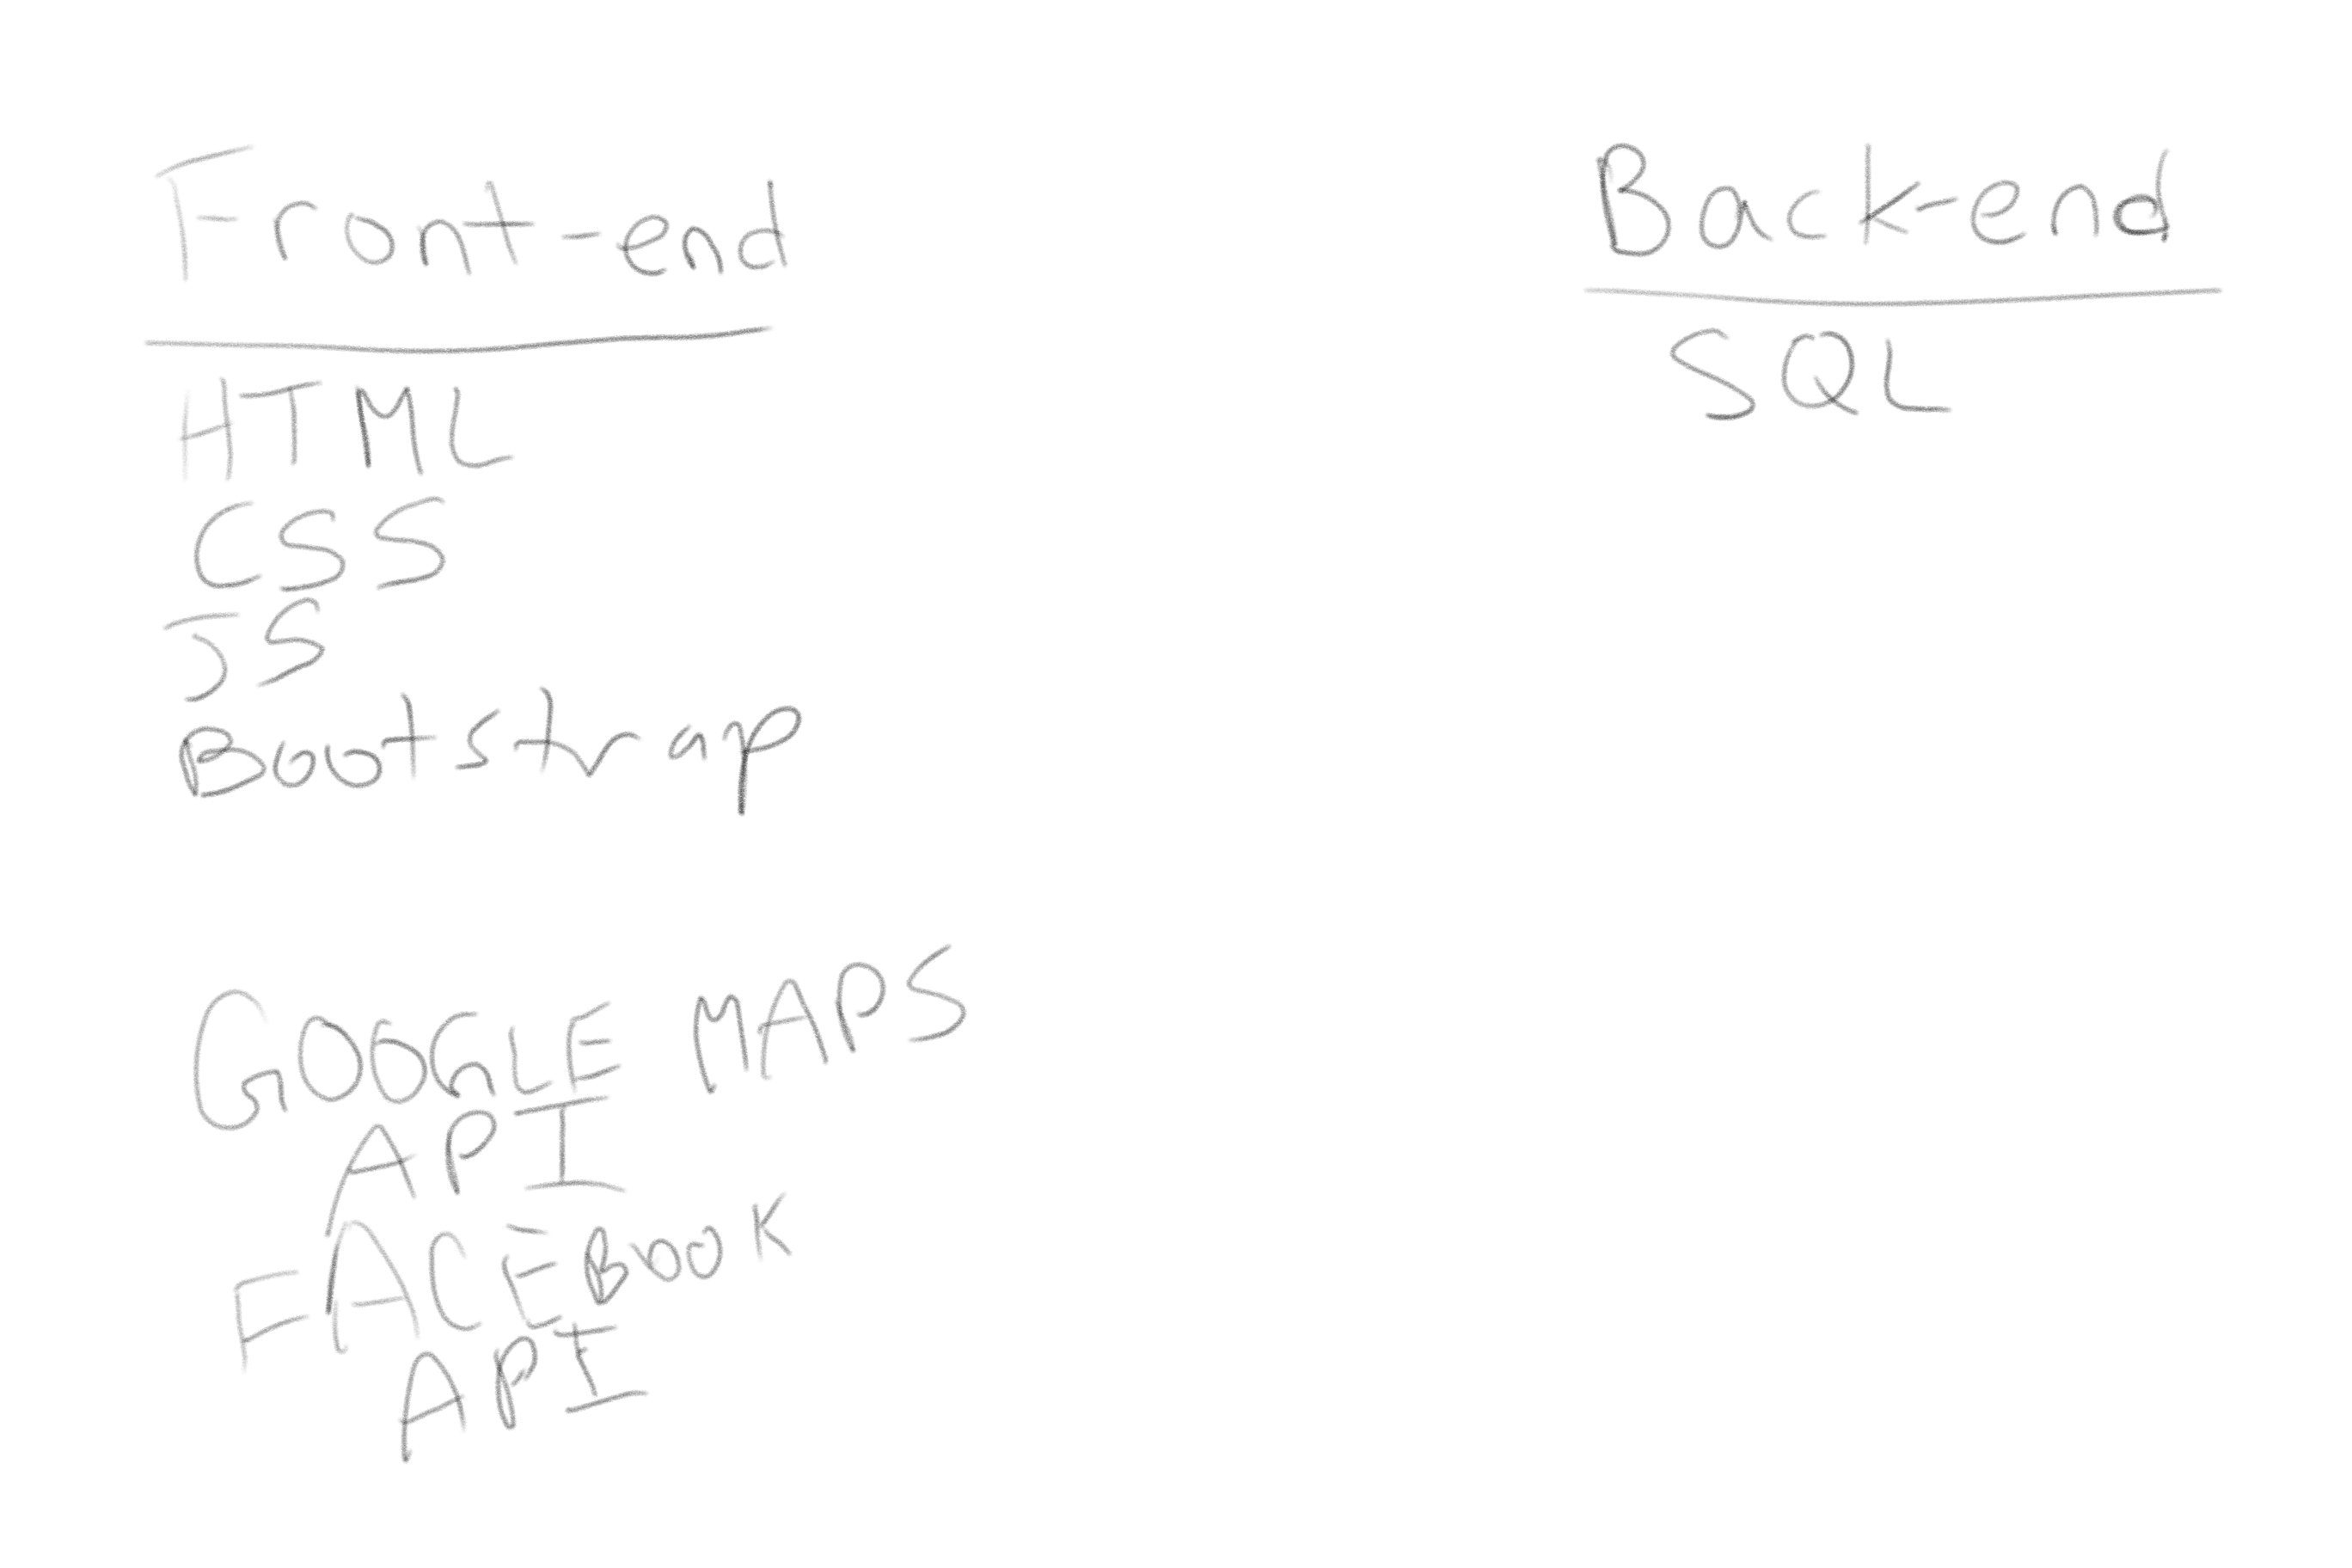 Front-end
HTML
CSS
JS
Bootstrap
GOOGLE MAPS
API
FACEBOOK
API
Back-end
SQL